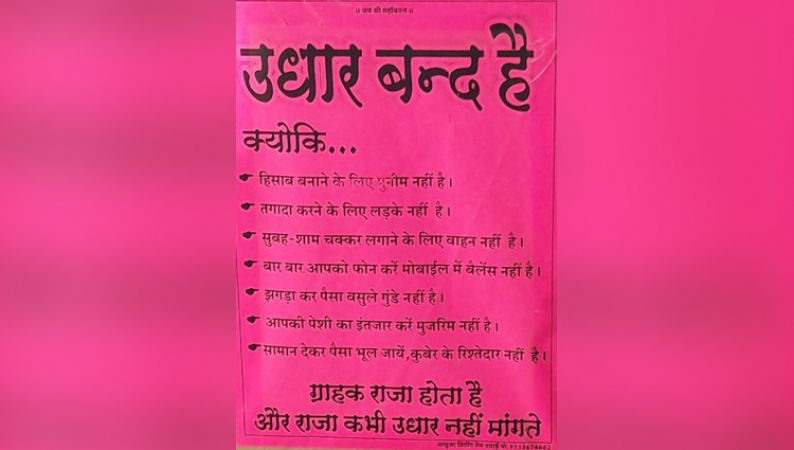 ॥ जय श्री महाँकाल ॥
उधार बन्द है
क्योकि...
हिसाब बनाने के लिए मुनीम नहीं है।
तगादा करने के लिए लड़के नहीं है।
सुबह-शाम चक्कर लगाने के लिए वाहन नहीं है।
बार बार आपको फोन करें मोबाईल में बैलेंस नहीं है।
झगड़ा कर पैसा वसुले गुंडे नहीं है।
आपकी पेशी का इंतजार करें मुजरिम नहीं है।
सामान देकर पैसा भूल जायें,कुबेर के रिश्तेदार नहीं है।
ग्राहक राजा होता है
और राजा कभी उधार नहीं मांगते